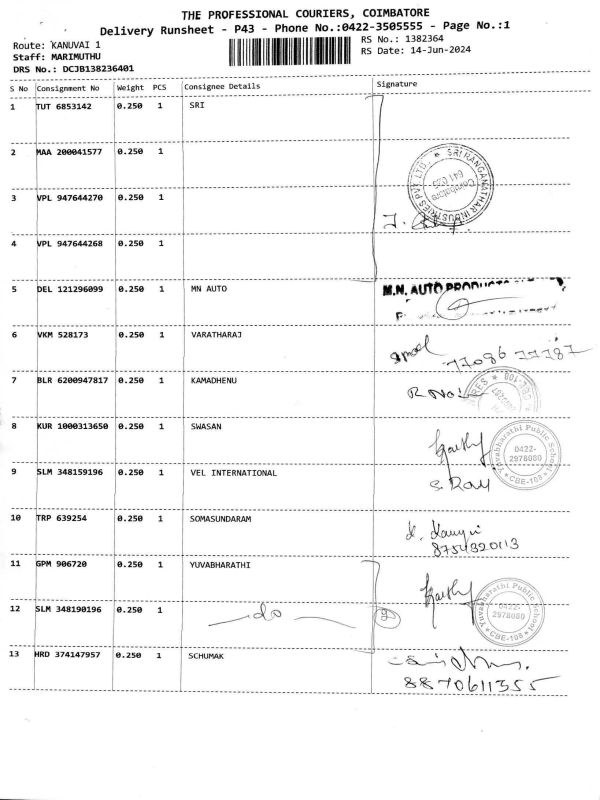 THE PROFESSIONAL COURIERS, COIMBATORE
Delivery Runsheet - P43 - Phone No.:0422-3505555 - Page No.:1
Route: KANUVAI 1
RS No.: 1382364
Staff: MARIMUTHU
RS Date: 14-Jun-2024
DRS No.: DCJB138236401
S No Consignment No Weight PCS Consignee Details Signature
1 TUT 6853142 0.250 1 SRI
2 MAA 200041577 0.250 1
SRI RANGANATHAR INDUSTRIES PVT LTD., Coimbatore
3 VPL 947644270 0.250 1
4 VPL 947644268 0.250 1
5 DEL 121296099 0.250 1 MN AUTO M.N. AUTO PRODUCTS
6 VKM 528173 0.250 1 VARATHARAJ
77086 77787
7 BLR 6200947817 0.250 1 KAMADHENU
8 KUR 1000313650 0.250 1 SWASAN
Yuvabharathi Public School CBE-108 0422-2978080
9 SLM 348159196 0.250 1 VEL INTERNATIONAL
10 TRP 639254 0.250 1 SOMASUNDARAM
8754320113
11 GPM 906720 0.250 1 YUVABHARATHI
Yuvabharathi Public School CBE-108 0422-2978080
12 SLM 348190196 0.250 1 do
13 HRD 374147957 0.250 1 SCHUMAK
8870611355